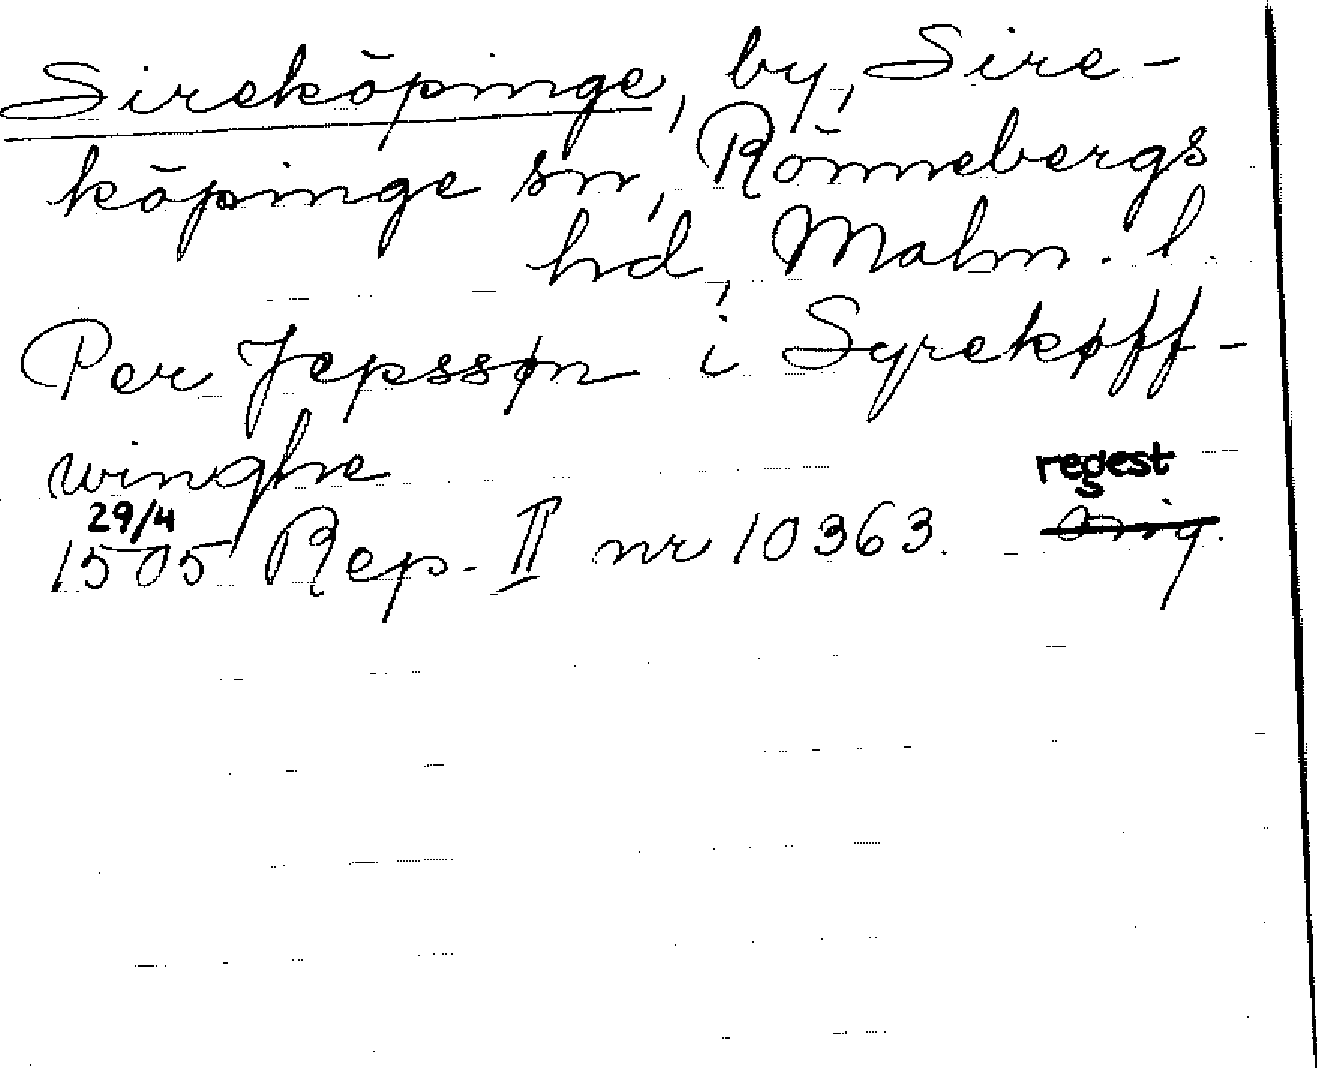 Sireköpinge, by, Sire-
köpinge sn, Rönnebergs
hd, Malm. l.
Per Jepssøn i Syrekøff-
winghe
29/4 regest
1505 Rep. II nr 10363. Orig.